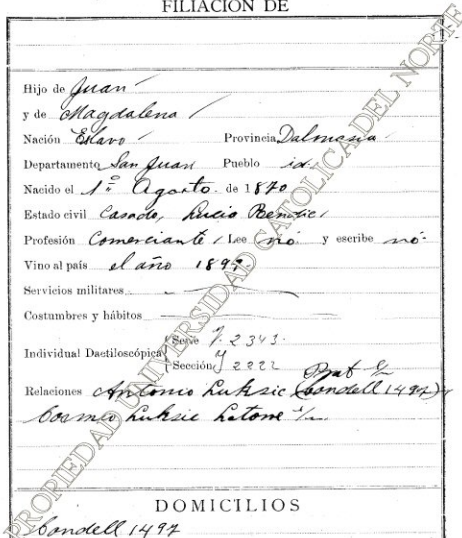 FILIACIÓN DE
Hijo de Juan
y de Magdalena
Nación Eslavo Provincia Dalmasia
Departamento San Juan Pueblo id.
Nacido el 1º Agosto de 1870
Estado civil Casado, Lucia Bendic
Profesión Comerciante Lee nó y escribe nó
Vino al país el año 1897
Servicios militares
Costumbres y hábitos
Individual Dactiloscópica
Serie V. 2343
Sección 2222
Relaciones Antonio Luksic (Condell 1497) y
Cosme Luksic Latorre s/n
DOMICILIOS
Condell 1497
PROPIEDAD UNIVERSIDAD CATOLICA DEL NORTE